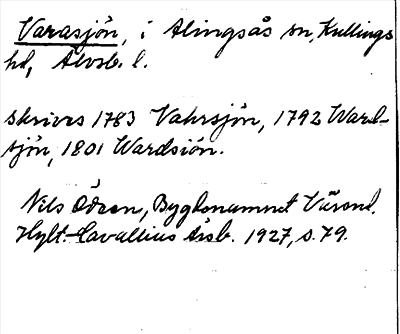 Varasjön, i Alingsås sn, Kullings
hd, Älvsb. l.
skrives 1783 Vahrsjön, 1792 Ward-
sjön, 1801 Wardsiön.
Nils Ödeen, Bygdonamnet Värend.
Hylt.-Cavallius årsb. 1927, s. 79.